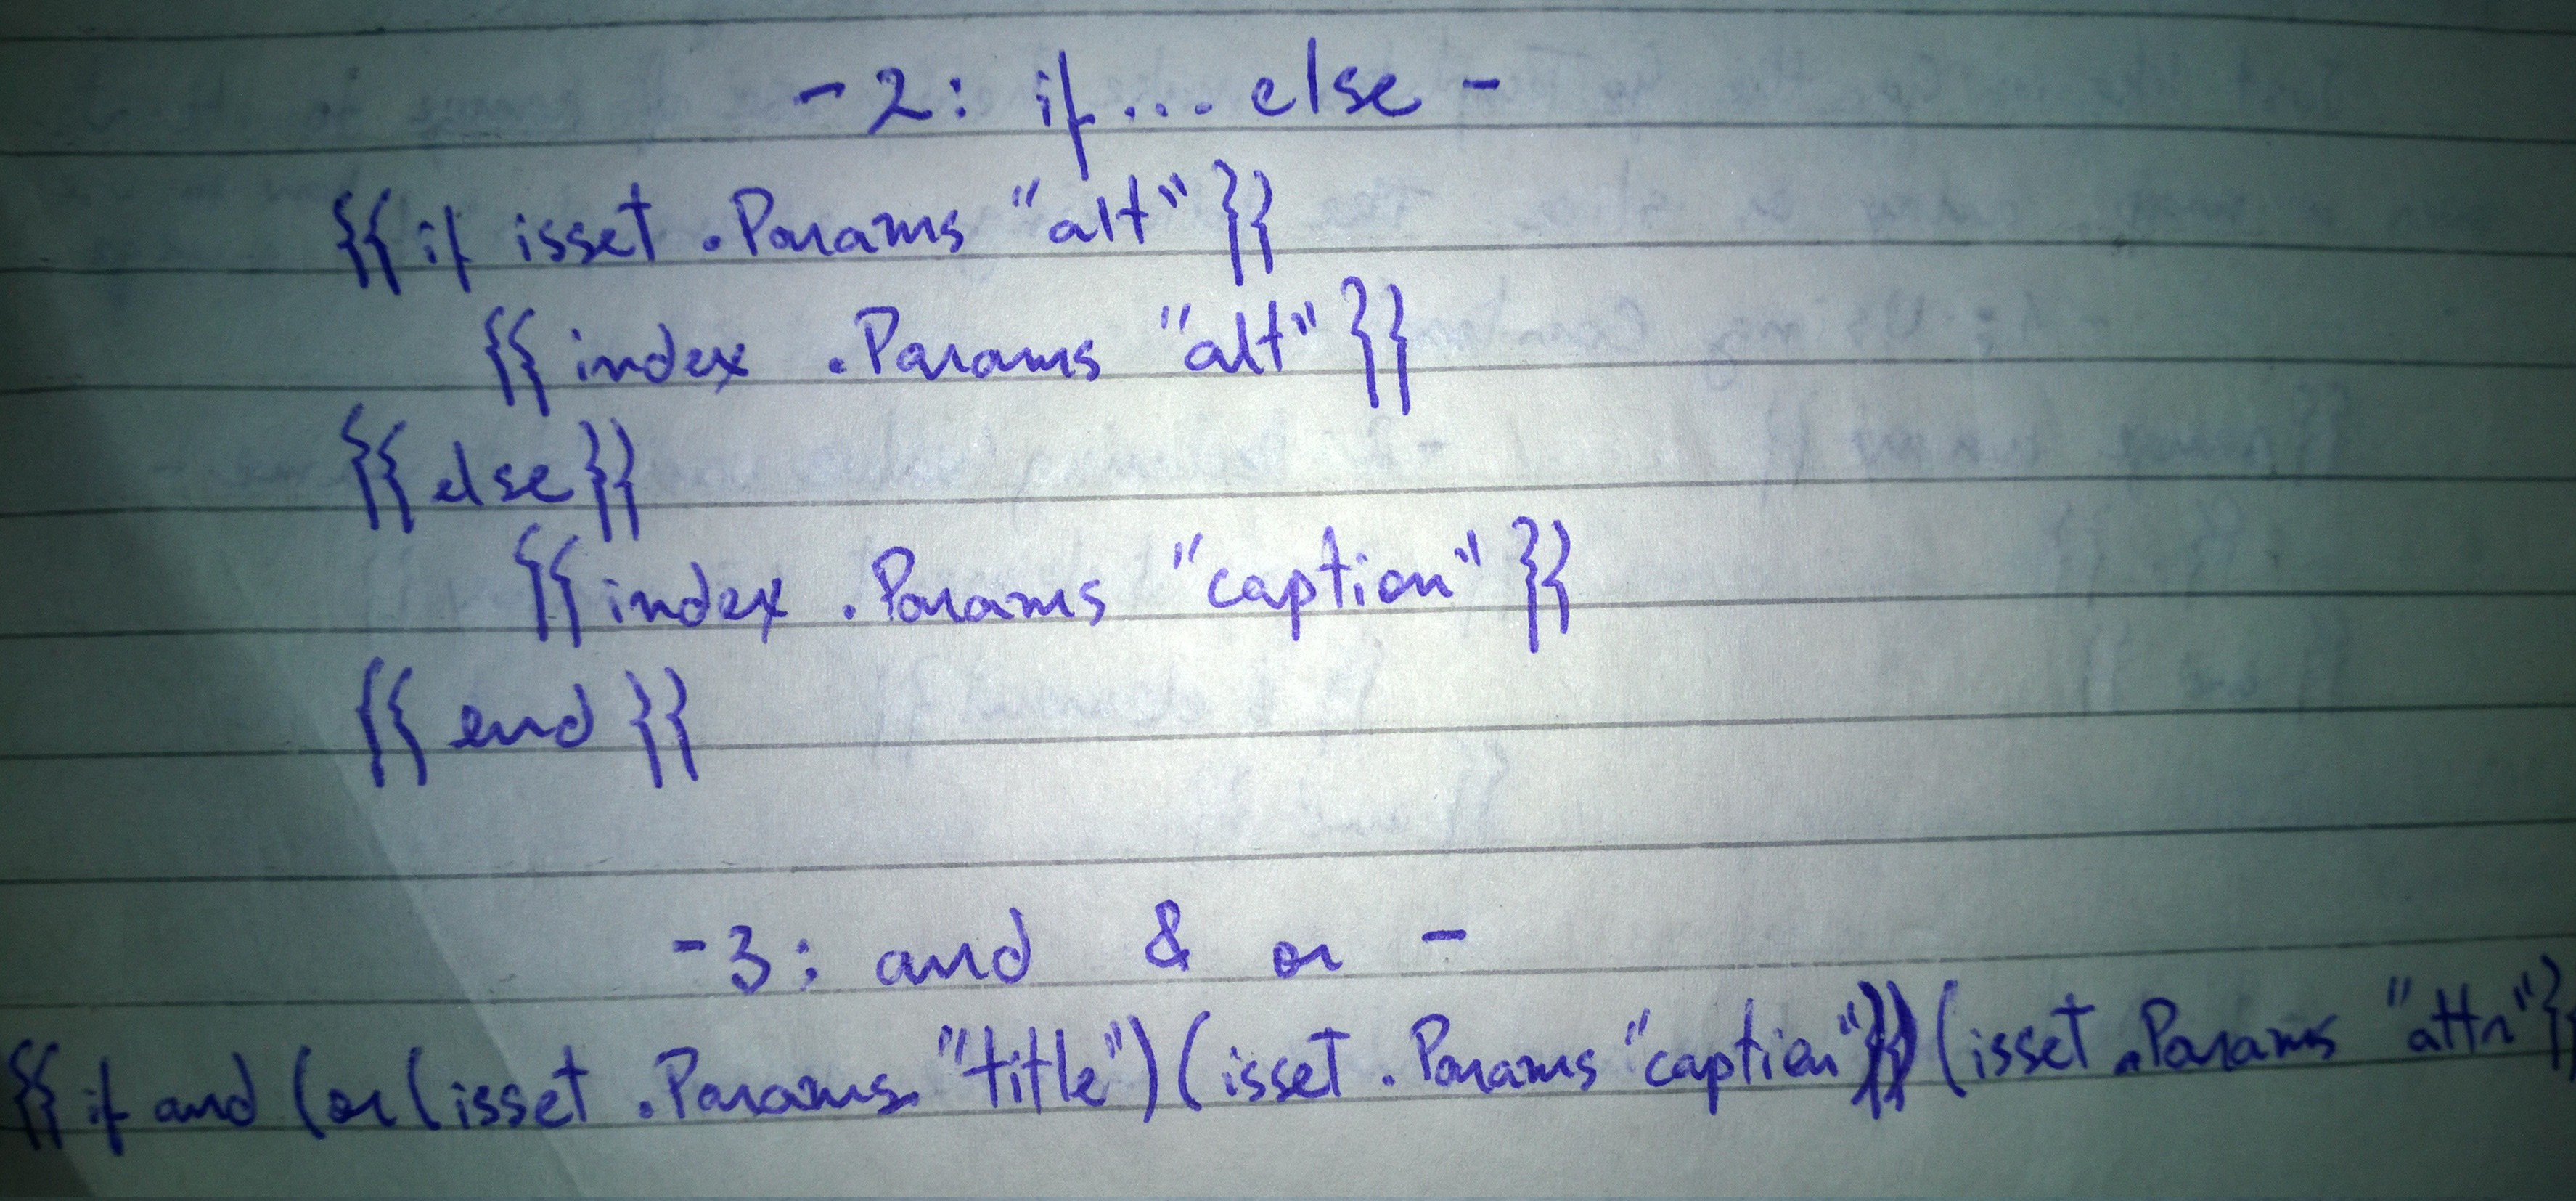 - 2: if ... else -
{{ if isset .Params "alt" }}
{{ index .Params "alt" }}
{{ else }}
{{ index .Params "caption" }}
{{ end }}
- 3: and & or -
{{ if and (or (isset .Params "title") (isset .Params "caption")) (isset .Params "attr") }}